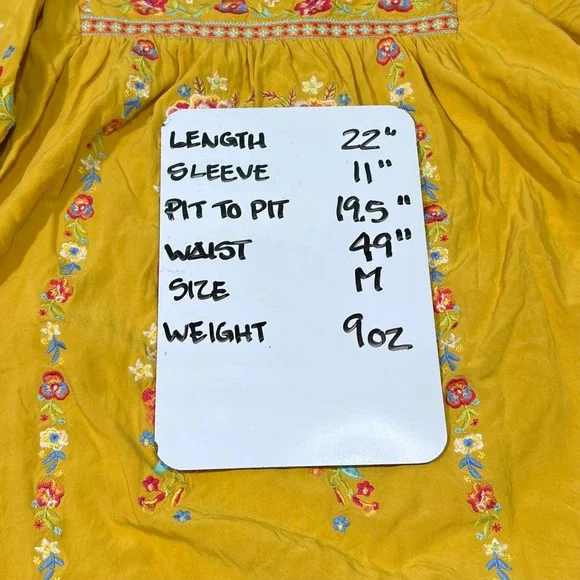 LENGTH 22"
SLEEVE 11"
PIT TO PIT 19.5"
WAIST 49"
SIZE M
WEIGHT 9oz